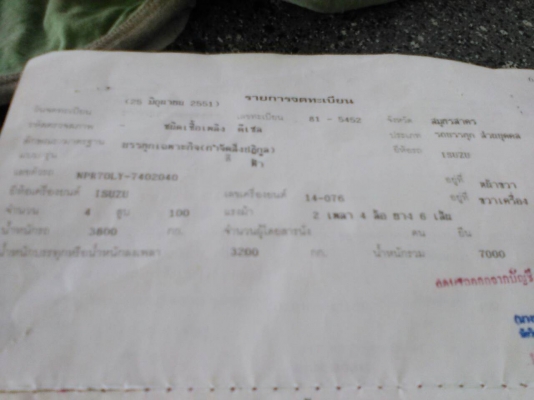 (25 มิถุนาคม 2551) รายการจดทะเบียน
วันจดทะเบียน เลขทะเบียน 81 - 5452 จังหวัด สมุทรสาคร
- ชนิดเชื้อเพลิง ดีเซล ประเภท รถบรรทุก ส่วนบุคคล
ลักษณะ/มาตรฐาน สี ฟ้า ยี่ห้อรถ ISUZU
แบบ/รุ่น
เลขตัวรถ NPR70LY-7402040 อยู่ที่
ยี่ห้อเครื่องยนต์ ISUZU เลขเครื่องยนต์ 14-076 อยู่ที่ ขวาเครื่อง
จำนวน 4 สูบ 100 แรงม้า 2 เพลา 4 ล้อ ยาง 6 เส้น
น้ำหนักรถ 3800 กก. จำนวนผู้โดยสาร นั่ง คน ยืน
น้ำหนักบรรทุกหรือน้ำหนักลงเพลา 3200 กก. น้ำหนักรวม 7000